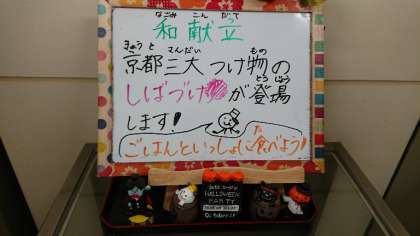 なごみ こん だて
和献立
きょうと さんだい もの
京都三大つけ物の
とうじょう
しばづけが登場
します!
た
ごはんといっしょに食べよう!
HALLOWEEN
PARTY